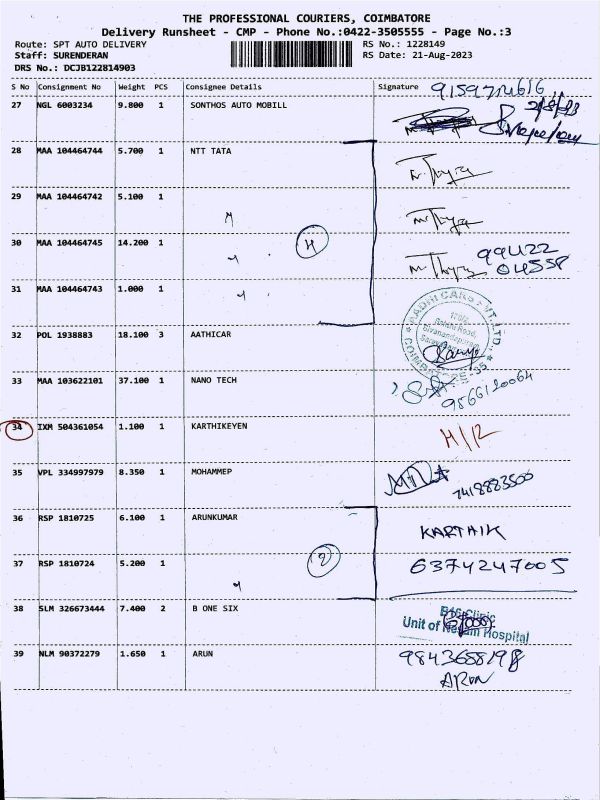 THE PROFESSIONAL COURIERS, COIMBATORE
Delivery Runsheet - CMP - Phone No.:0422-3505555 - Page No.:3
Route: SPT AUTO DELIVERY RS No.: 1228149
Staff: SURENDERAN RS Date: 21-Aug-2023
DRS No.: DCJB122814903
S No Consignment No Weight PCS Consignee Details Signature
27 NGL 6003234 9.800 1 SONTHOS AUTO MOBILL
28 MAA 104464744 5.700 1 NTT TATA
29 MAA 104464742 5.100 1
30 MAA 104464745 14.200 1 4 99422
04558
31 MAA 104464743 1.000 1
32 POL 1938883 18.100 3 AATHICAR
AADHI CARS PVT. LTD.
COIMBATORE-35
33 MAA 103622101 37.100 1 NANO TECH
9566120064
34 IXM 504361054 1.100 1 KARTHIKEYEN
35 VPL 334997979 8.350 1 MOHAMMEP 7418883500
36 RSP 1810725 6.100 1 ARUNKUMAR KARTHIK
37 RSP 1810724 5.200 1 2 6374247005
38 SLM 326673444 7.400 2 B ONE SIX
Unit of Hospital
39 NLM 90372279 1.650 1 ARUN
ARUN